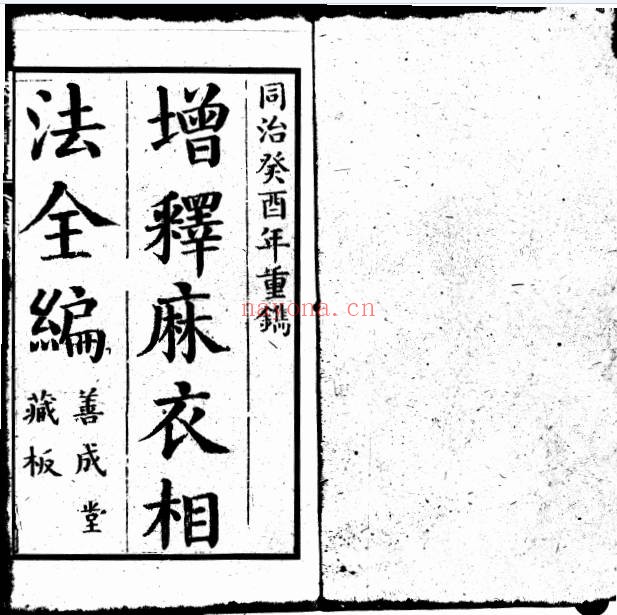 同治癸酉年重鐫
增釋麻衣相
法全編
善成堂
藏板
nayona.cn